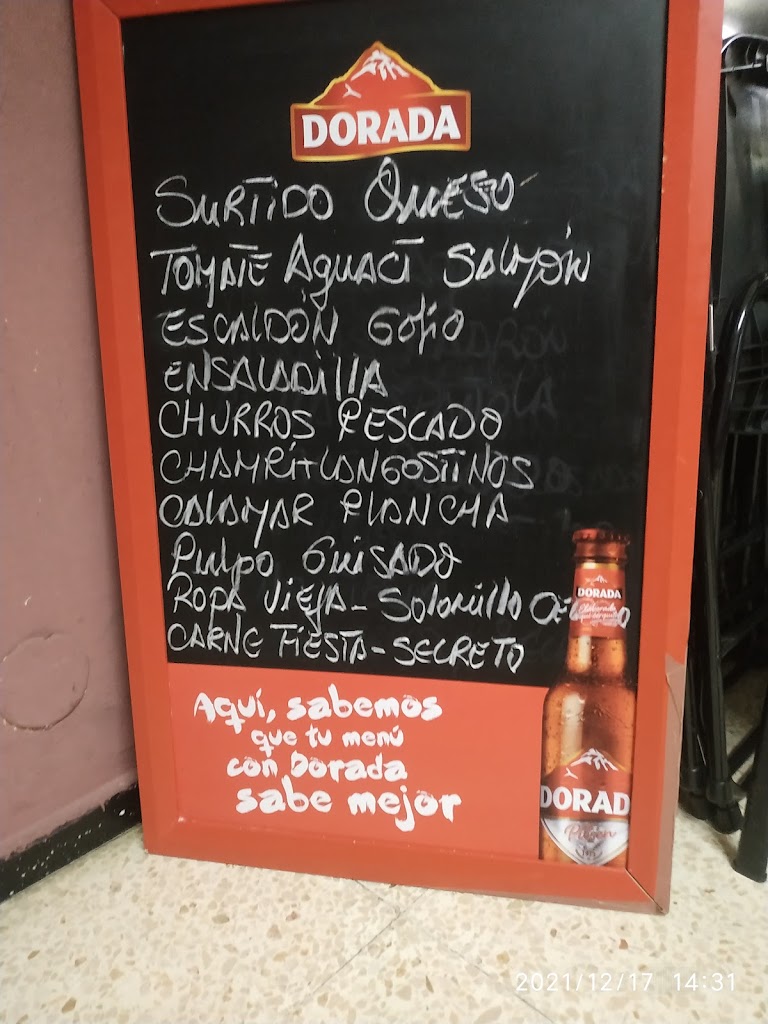 DORADA
SURTIDO QUESO
TOMATE AGUACT SALMÓN
ESCALDÓN GOFIO
ENSALADILLA
CHURROS PESCADO
CHAMPI+LANGOSTINOS
CALAMAR PLANCHA
PULPO GUISADO
ROPA VIEJA - SOLOMILLO
CARNE FIESTA - SECRETO
DORADA
Aquí, sabemos
que tu menú
con Dorada
sabe mejor
DORAD
Pilsen
2021/12/17 14:31